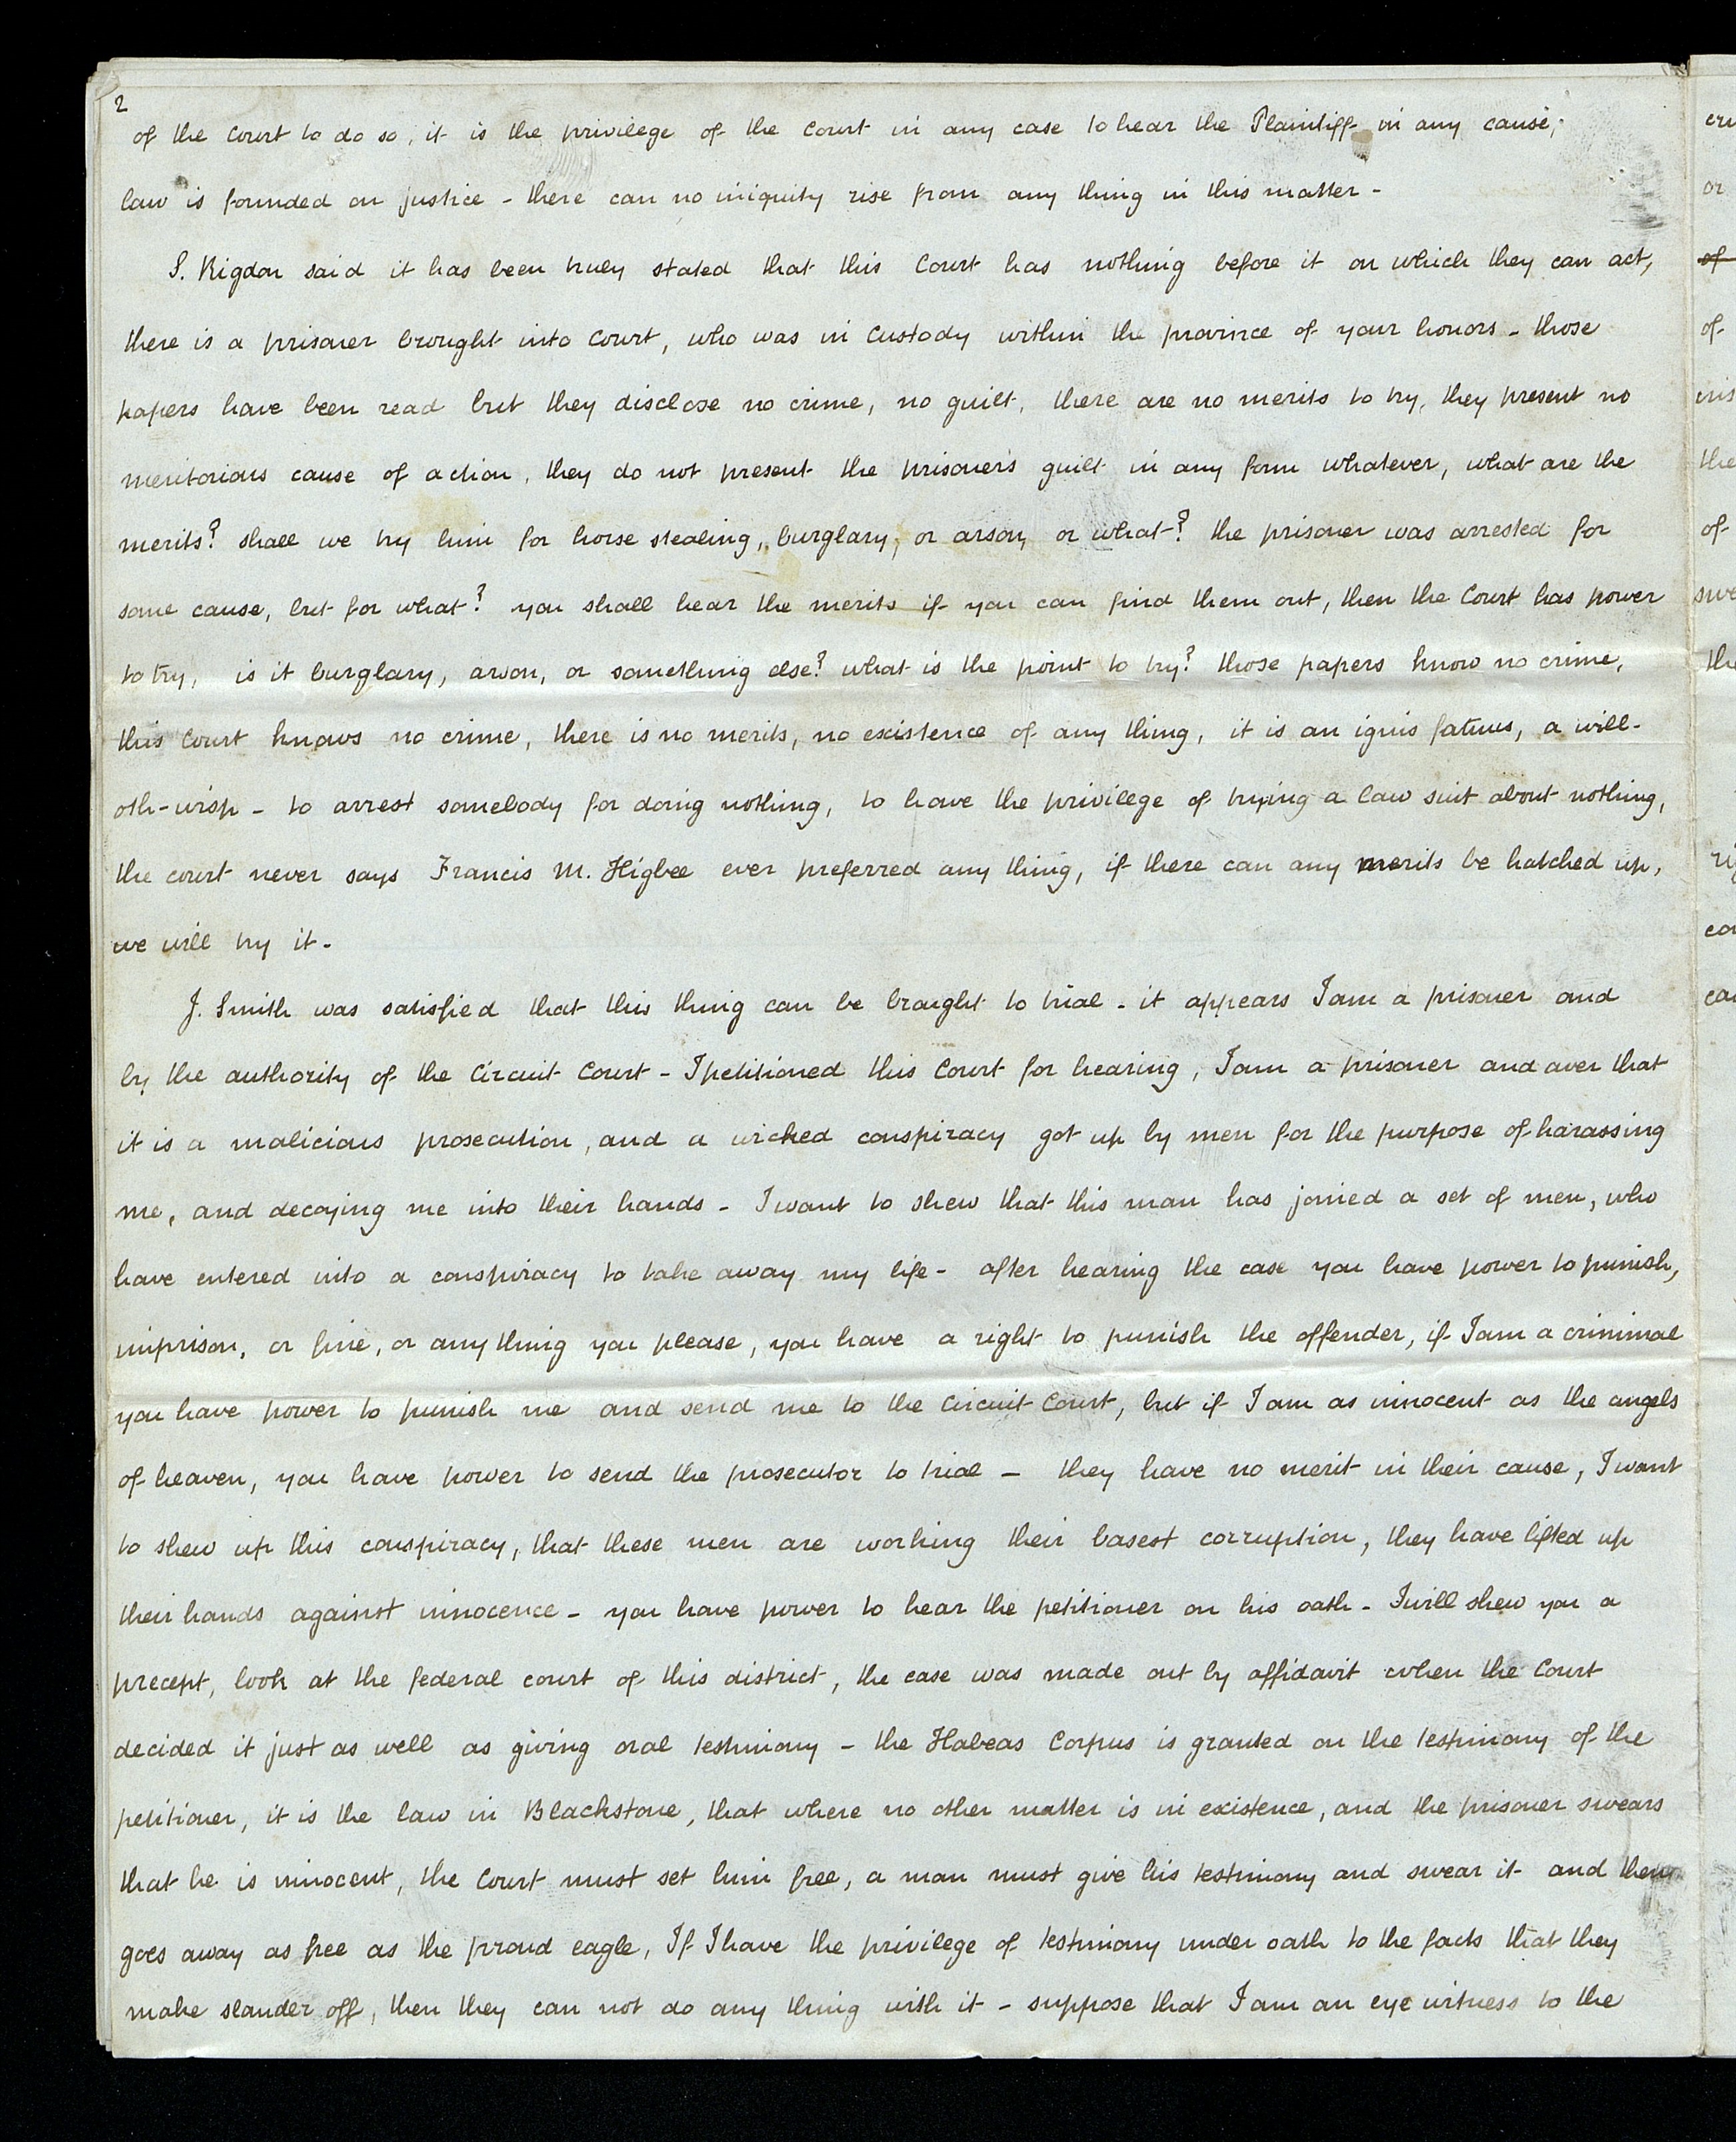 2
of the Court to do so, it is the privilege of the Court in any case to hear the Plaintiff in any cause;
law is founded on justice - there can no iniquity rise from any thing in this matter -
S. Rigdon said it has been truly stated that this Court has nothing before it on which they can act,
there is a prisoner brought into Court, who was in custody within the province of your honors - those
papers have been read but they disclose no crime, no guilt, there are no merits to try, they present no
meritorious cause of action, they do not present the prisoner's guilt in any form whatever, what are the
merits? shall we try him for horse stealing, burglary, or arson, or what? the prisoner was arrested for
some cause, but for what? you shall hear the merits if you can find them out, then the Court has power
to try, is it burglary, arson, or something else? what is the point to try? those papers know no crime,
this Court knows no crime, there is no merits, no existence of any thing, it is an ignis fatuus, a will-
oth-wisp - to arrest somebody for doing nothing, to have the privilege of trying a law suit about nothing,
the court never says Francis M. Higbee ever preferred any thing, if there can any merits be hatched up,
we will try it -
J. Smith was satisfied that this thing can be brought to trial - it appears I am a prisoner and
by the authority of the Circuit Court - I petitioned this Court for hearing, I am a prisoner and aver that
it is a malicious prosecution, and a wicked conspiracy got up by men for the purpose of harassing
me, and decoying me into their hands - I want to shew that this man has joined a set of men, who
have entered into a conspiracy to take away my life - after hearing the case you have power to punish,
imprison, or fine, or any thing you please, you have a right to punish the offender, if I am a criminal
you have power to punish me and send me to the Circuit Court, but if I am as innocent as the angels
of heaven, you have power to send the prosecutor to trial - they have no merit in their cause, I want
to shew up this conspiracy, that these men are working their basest corruption, they have lifted up
their hands against innocence - you have power to hear the petitioner on his oath - I will shew you a
precept, look at the federal court of this district, the case was made out by affidavit when the Court
decided it just as well as giving oral testimony - the Habeas Corpus is granted on the testimony of the
petitioner, it is the law in Blackstone, that where no other matter is in existence, and the prisoner swears
that he is innocent, the Court must set him free, a man must give his testimony and swear it and then
goes away as free as the proud eagle, If I have the privilege of testimony under oath to the facts that they
make slander off, then they can not do any thing with it - suppose that I am an eye witness to the